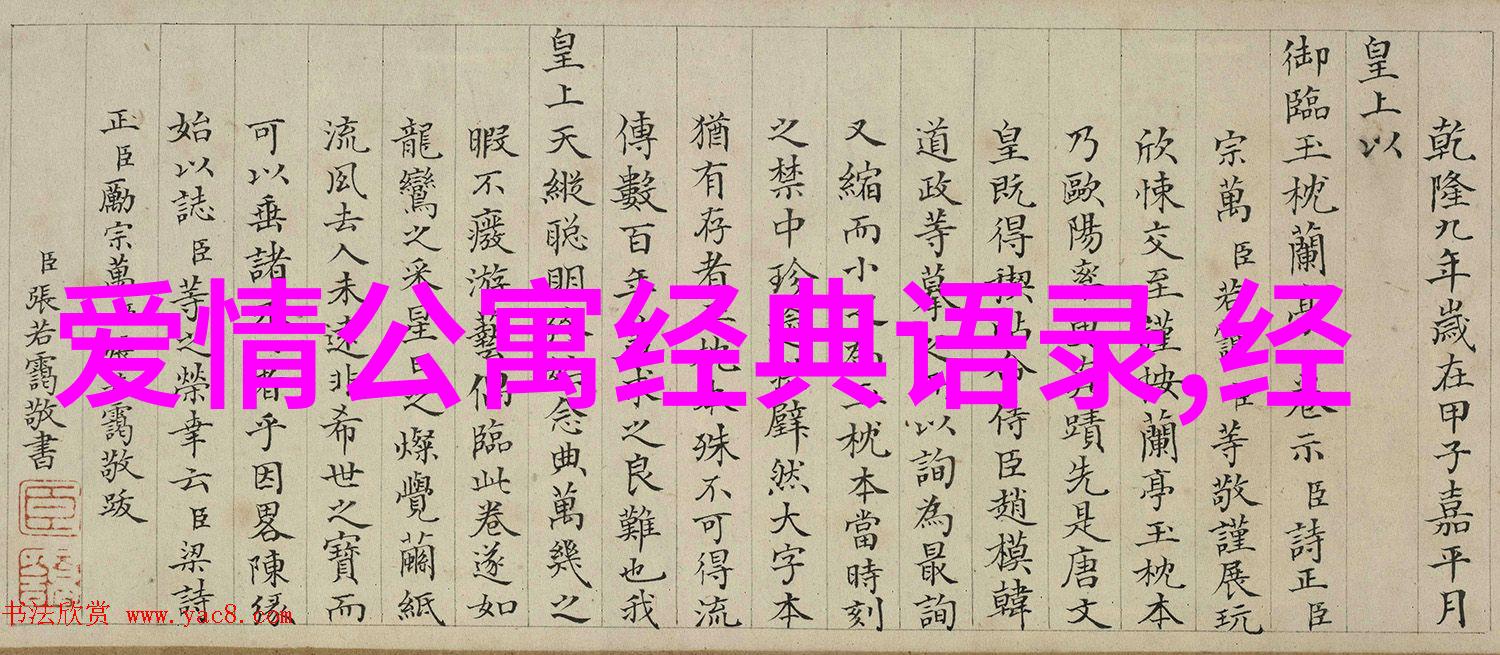 乾隆九年歲在甲子嘉平月
皇上以
御臨玉枕蘭亭卷示臣詩正臣
宗萬臣若靄臣等敬謹展玩
欣悚交至謹按蘭亭玉枕本
乃歐陽率更有蹟先是唐文
皇既得禊帖命侍臣趙模韓
道政等摹之以詢為最詢
又縮而小之為玉枕本當時刻
之禁中珍
璧然大字本
猶有存者玉枕本殊不可得流
傳數百年
求之良難也我
皇上天縱聰明
念典萬幾之
暇不癈游藝偶臨此卷遂如
龍鸞之采星日之燦覺繭紙
流風去人未遠非希世之寶而
可以垂諸
者乎因畧陳緣
始以誌臣等之榮幸云臣梁詩
正臣勵宗萬
靄敬跋
臣張若靄敬書
爱情公寓经典语录,经
书法欣赏 www.yac8.com